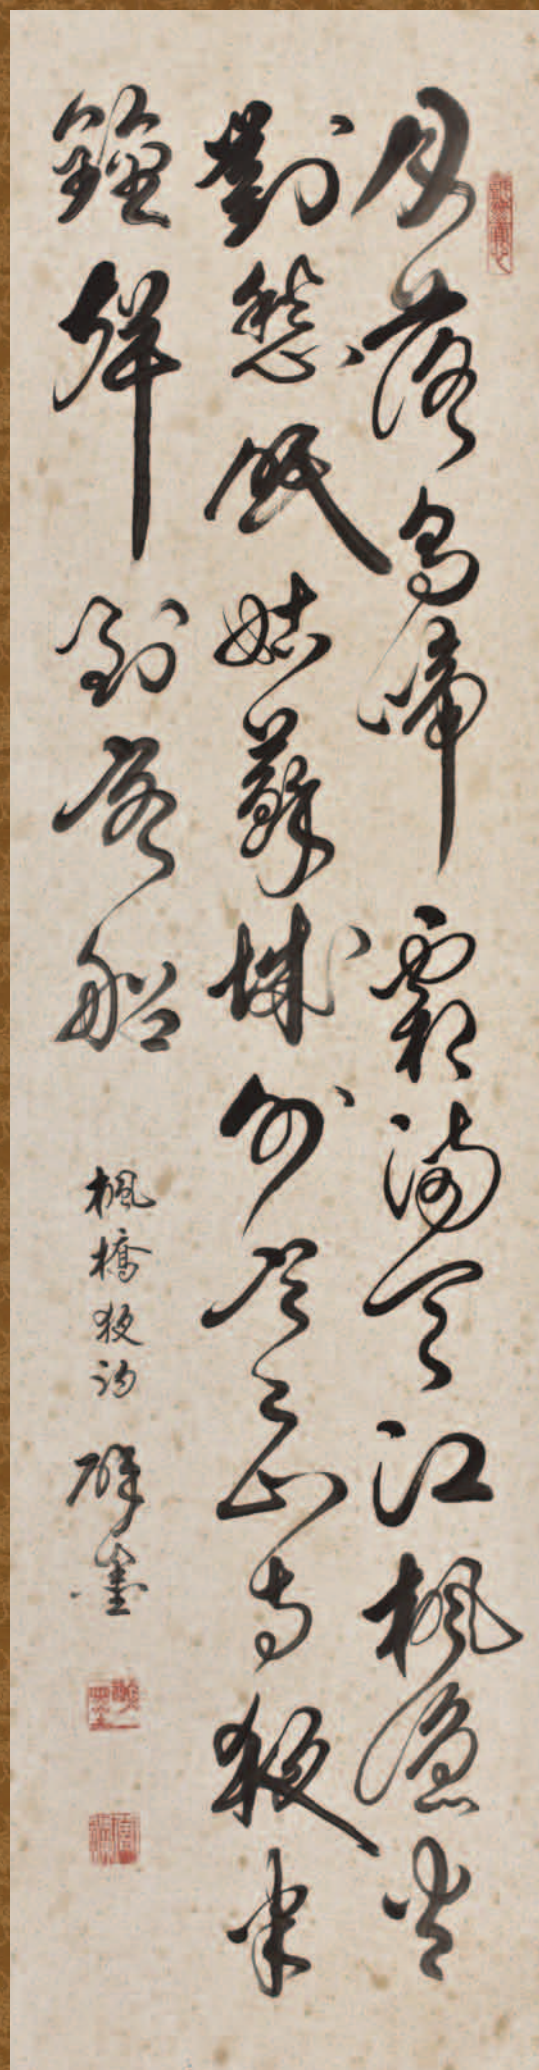 月落烏啼霜滿天江楓漁火
對愁眠姑蘇城外寒山寺夜半
鐘聲到客船
楓橋夜泊